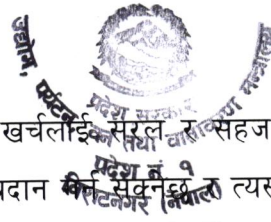 उद्योग, पर्यटन, वन तथा वातावरण मन्त्रालय
प्रदेश सरकार
खर्चलाई सरल र सहज
प्रदेश नं १
प्रदान गर्न सक्नेछ र त्यस
विराटनगर (नेपाल)